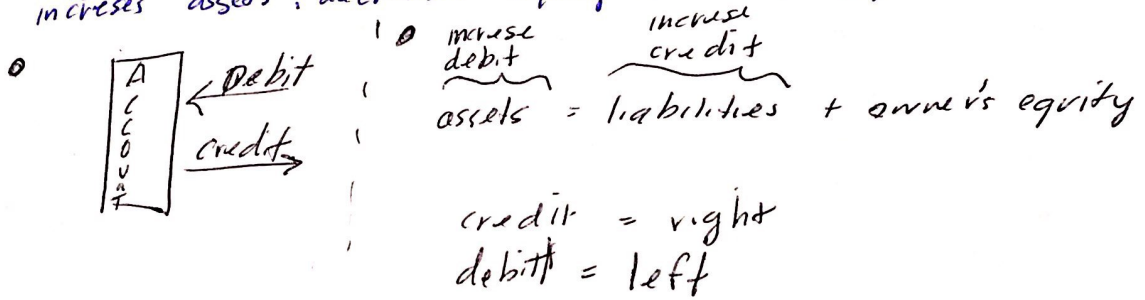 increses assets
ACCOUNT
Debit
credit
increse debit
increse credit
assets = liabilities + owner's equity
credit = right
debit = left